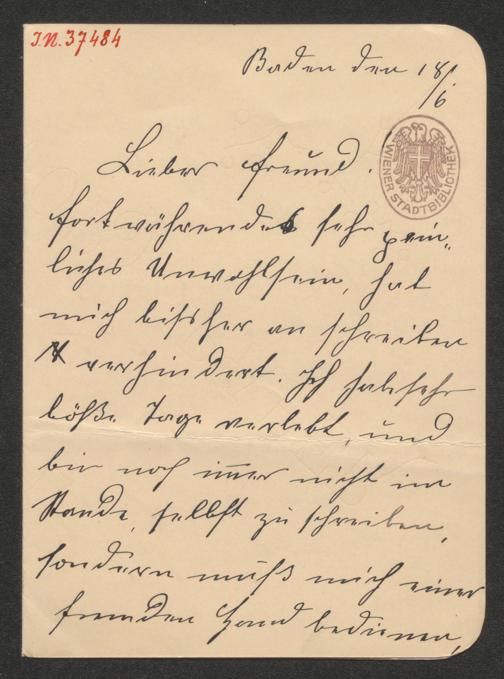 I.N. 37484
Baden den 18/
/6
WIENER STADTBIBLIOTHEK
Lieber Freund.
fortwährendes sehr pein„
liches Unwohlsein, hat
mich bissher an schreiben
verhindert. Ich hab sehr
böße Tage verlebt, und
bin noch immer nicht im
Stande, selbst zu schreiben,
sondern muß mich einer
fremden Hand bedienen,